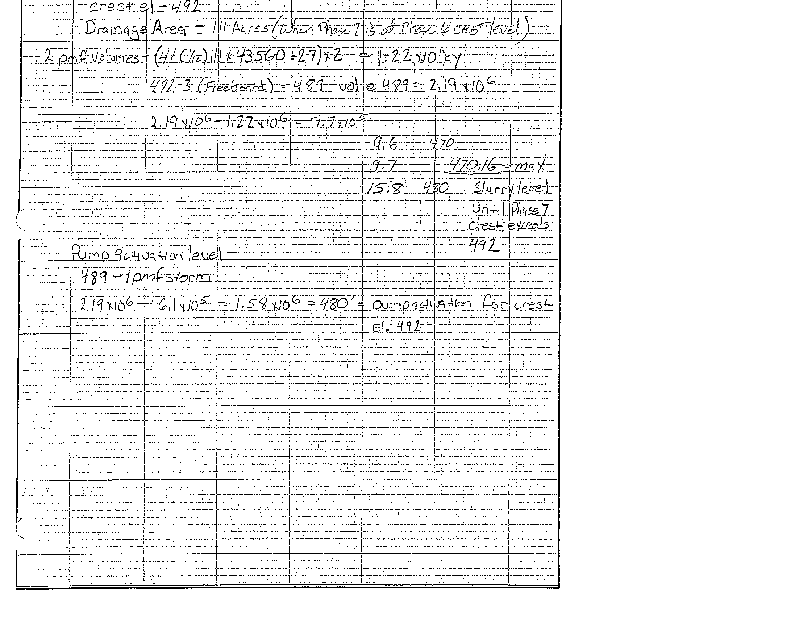 crest el - 492
Drainage Area = 111 Acres (when Phase 7 is at Phase 6 crest level)
2 pmf volumes = (41 (1/12) 111 x 43560 ÷ 27) x 2 = 1.22 x 10⁶ cy
492 - 3 (Freeboard) = 489 - vol @ 489 = 2.19 x 10⁶
2.19 x 10⁶ - 1.22 x 10⁶ = 9.7 x 10⁵
9.6 470
9.7 470.16 = max
15.8 480 slurry level
until Phase 7
crest exceeds
492
Pump activation level
489 - 1 pmf storm
2.19 x 10⁶ - 6.1 x 10⁵ = 1.58 x 10⁶ = 480' = pump activation for crest
el. 492